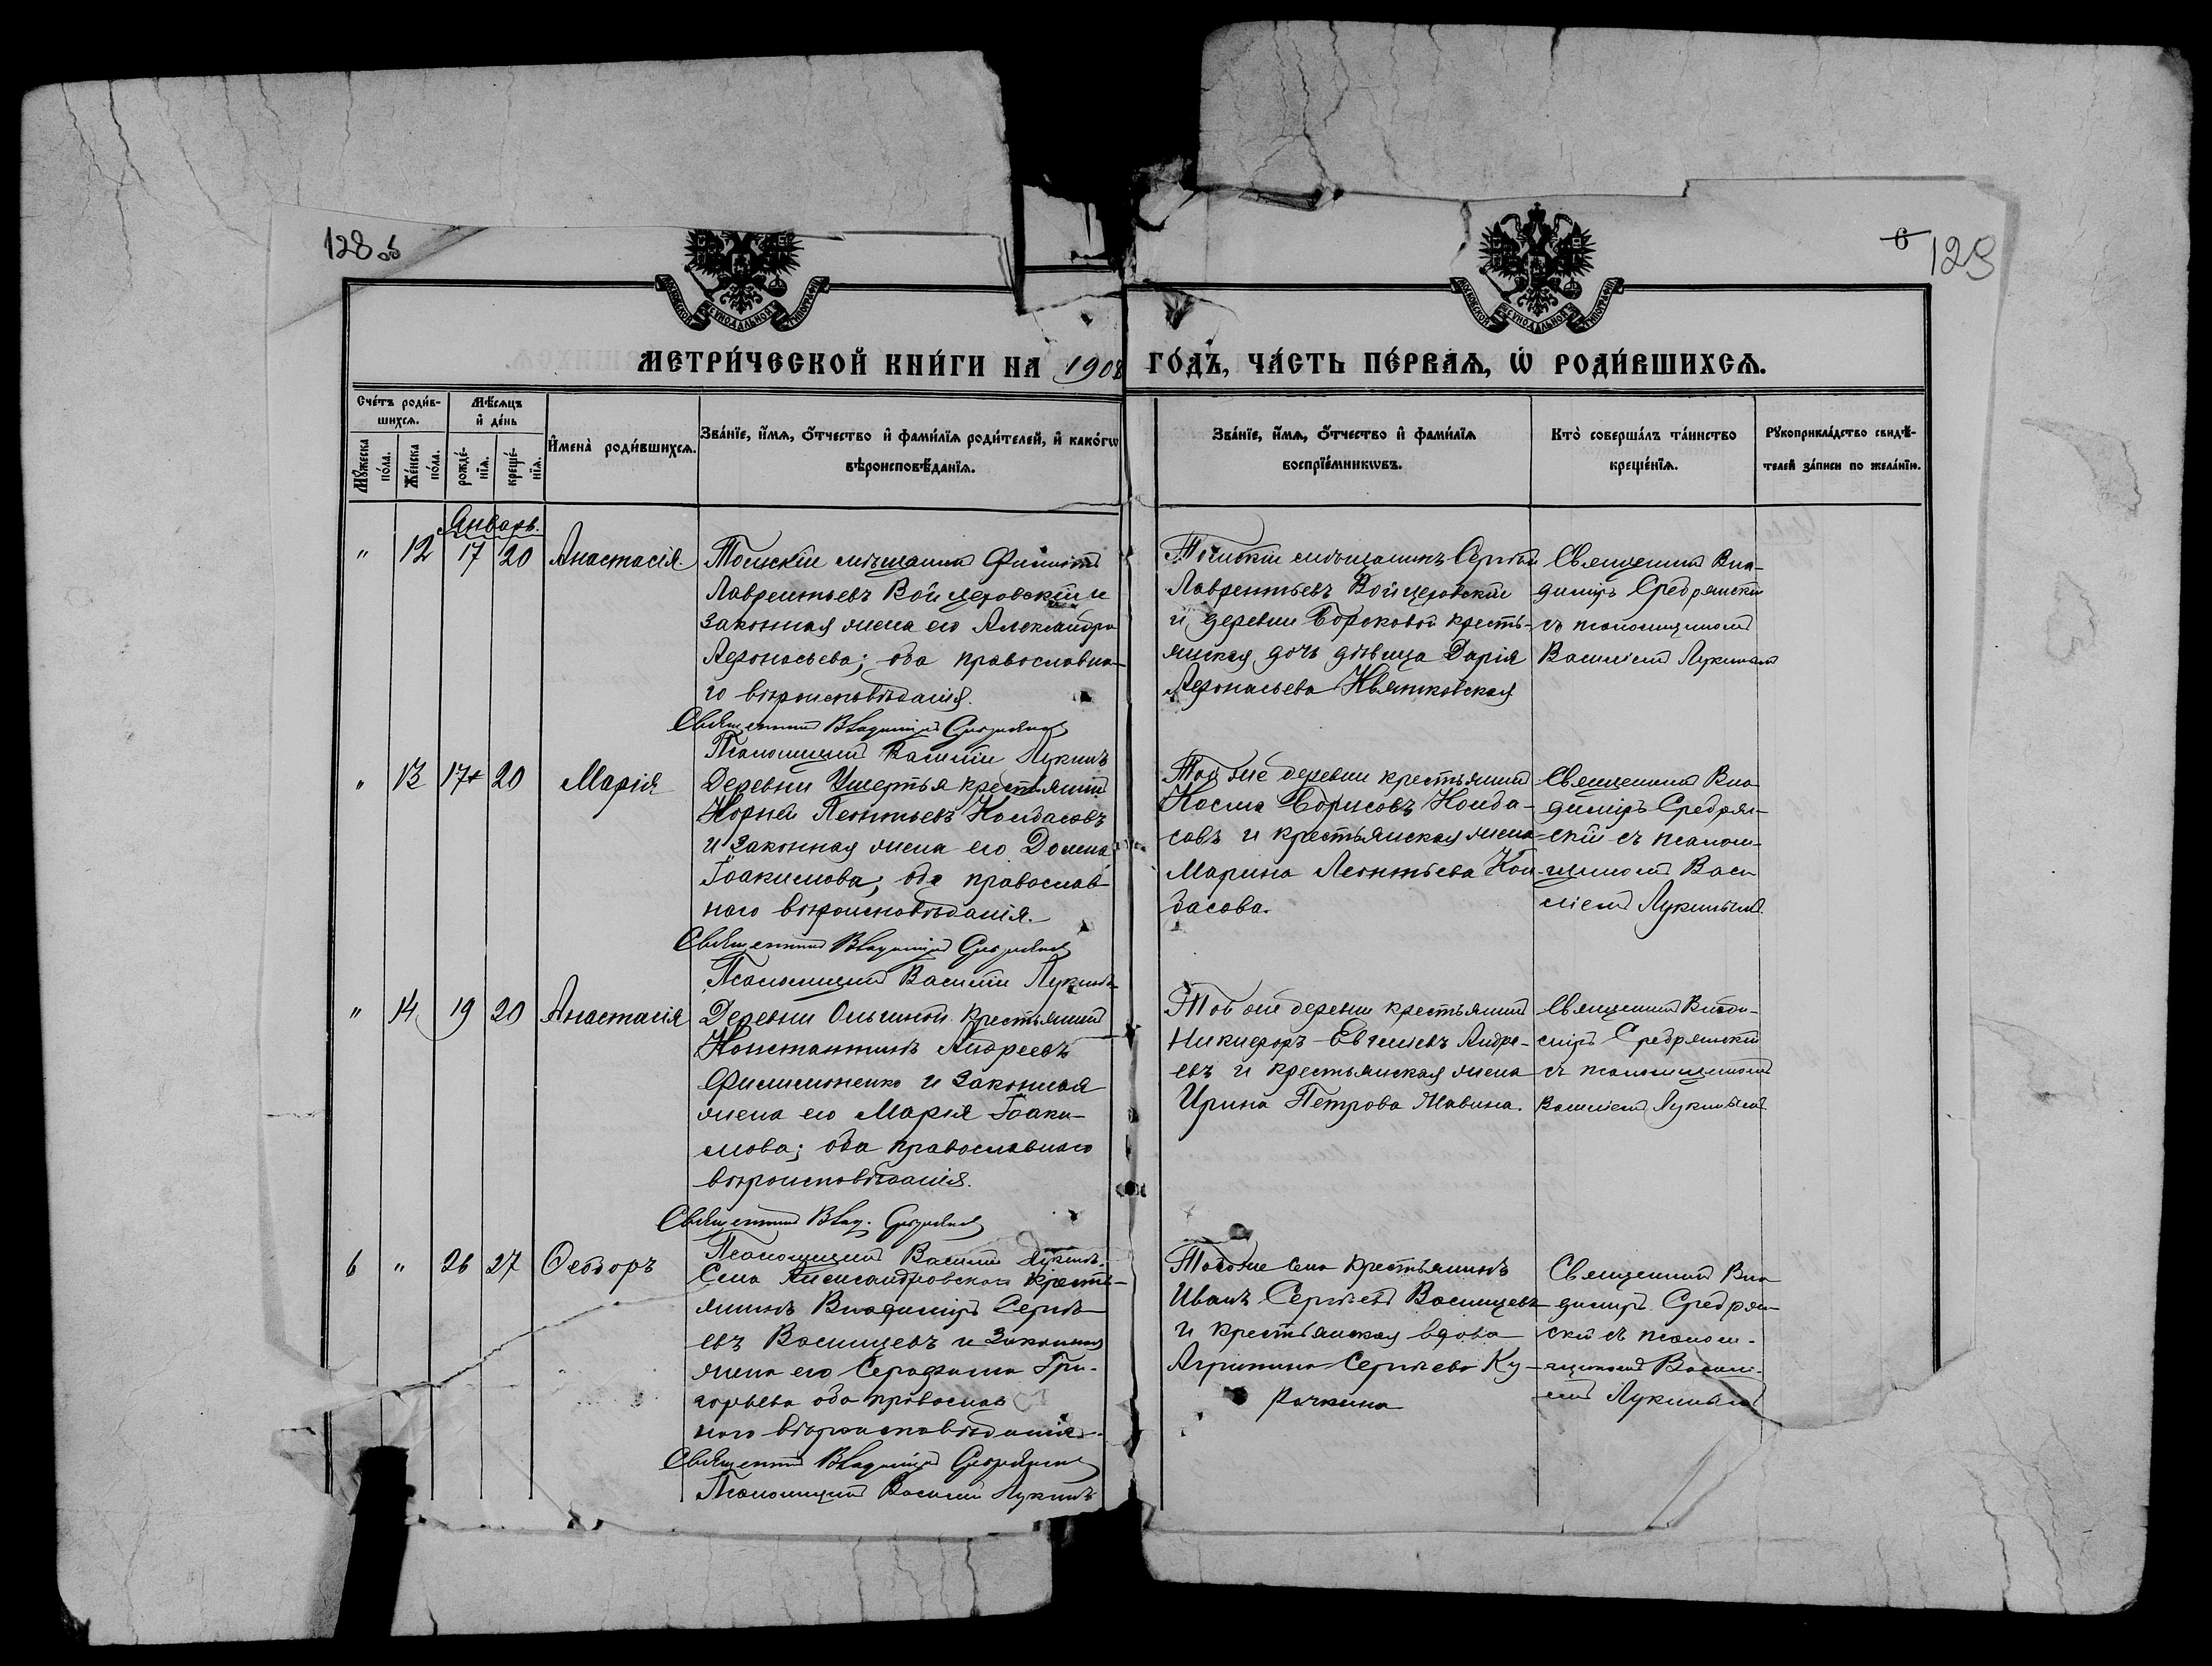 128 об
6
129
МОСКОВСКОЙ СѴНОДАЛЬНОЙ ТИПОГРАФІИ
МОСКОВСКОЙ СѴНОДАЛЬНОЙ ТИПОГРАФІИ
МЕТРИ́ЧЕСКОЙ КНИ́ГИ НА 1908 ГО́ДЪ, ЧА́СТЬ ПЕ́РВАѦ, Ѡ҆ РОДИ́ВШИХСѦ.
Сче́тъ роди́в-
шихсѧ.
Мѣ́сѧцъ
и҆ де́нь
Мꙋ́жеска
по́ла.
Же́нска
по́ла.
рожде́-
нїѧ.
креще́-
нїѧ.
И҆мена̀ роди́вшихсѧ.
Зва́нїе, и҆́мѧ, ѻ҆́тчество и҆ фами́лїѧ роди́телей, и҆ како́гѡ
вѣроисповѣ́данїѧ.
Зва́нїе, и҆́мѧ, ѻ҆́тчество и҆ фами́лїѧ
воспрїе́мникѡвъ.
Кто̀ соверша́лъ та́инство
креще́нїѧ.
Рꙋкоприкла́дство свидѣ́-
телей за́писи по жела́нїю.
Январь.
" 12 17 20 Анастасія.
Томскій мѣщанинъ Филиппъ
Лаврентьевъ Войцеховскій и
законная жена его Александра
Афонасьева; оба православна-
го вѣроисповѣданія.
Священникъ Владиміръ Сребрянскій
Псаломщикъ Василій Лукинъ
Томскій мѣщанинъ Сергѣй
Лаврентьевъ Войцеховскій
и деревни Бороковой кресть-
янская дочь дѣвица Дарія
Афонасьева Квятковская
Священникъ Вла-
диміръ Сребрянскій
съ псаломщикомъ
Василіемъ Лукинымъ
" 13 17 20 Марія
Деревни Ишертья крестьянинъ
Корней Леонтьевъ Кондасовъ
и законная жена его Домна
Іоакимова; оба православ-
наго вѣроисповѣданія.
Священникъ Владиміръ Сребрянскій
Псаломщикъ Василій Лукинъ
Той же деревни крестьянинъ
Косма Борисовъ Конда-
совъ и крестьянская жена
Марина Леонтьева Кон-
дасова.
Священникъ Вла-
диміръ Сребрян-
скій съ псалом-
щикомъ Васи
ліемъ Лукинымъ.
" 14 19 20 Анастасія
Деревни Ольгиной крестьянинъ
Константинъ Андреевъ
Филимоненко и законная
жена его Марія Іоаки-
мова; оба православнаго
вѣроисповѣданія.
Священникъ Влад. Сребрянскій
Псаломщикъ Василій Лукинъ.
Той же деревни крестьянинъ
Никифоръ Андре-
евъ и крестьянская жена
Ирина Петрова
Священникъ Влади-
міръ Сребрянскій
съ псаломщикомъ
Василіемъ Лукинымъ
6 " 26 27 Ѳеодоръ
Села Александровскаго кресть-
янинъ Владиміръ Сергѣ-
евъ Васищевъ и законная
жена его Серафима Гри-
горьева оба православ
наго вѣроисповѣданія.
Священникъ Владиміръ Сребрянскій
Псаломщикъ Василій Лукинъ
Того же села крестьянинъ
Иванъ Сергѣевъ Васищевъ
и крестьянская вдова
Агрипина Сергѣева Ку-
рочкина
Священникъ Вла
диміръ Сребрян-
скій съ псалом-
щикомъ Васили-
емъ Лукинымъ